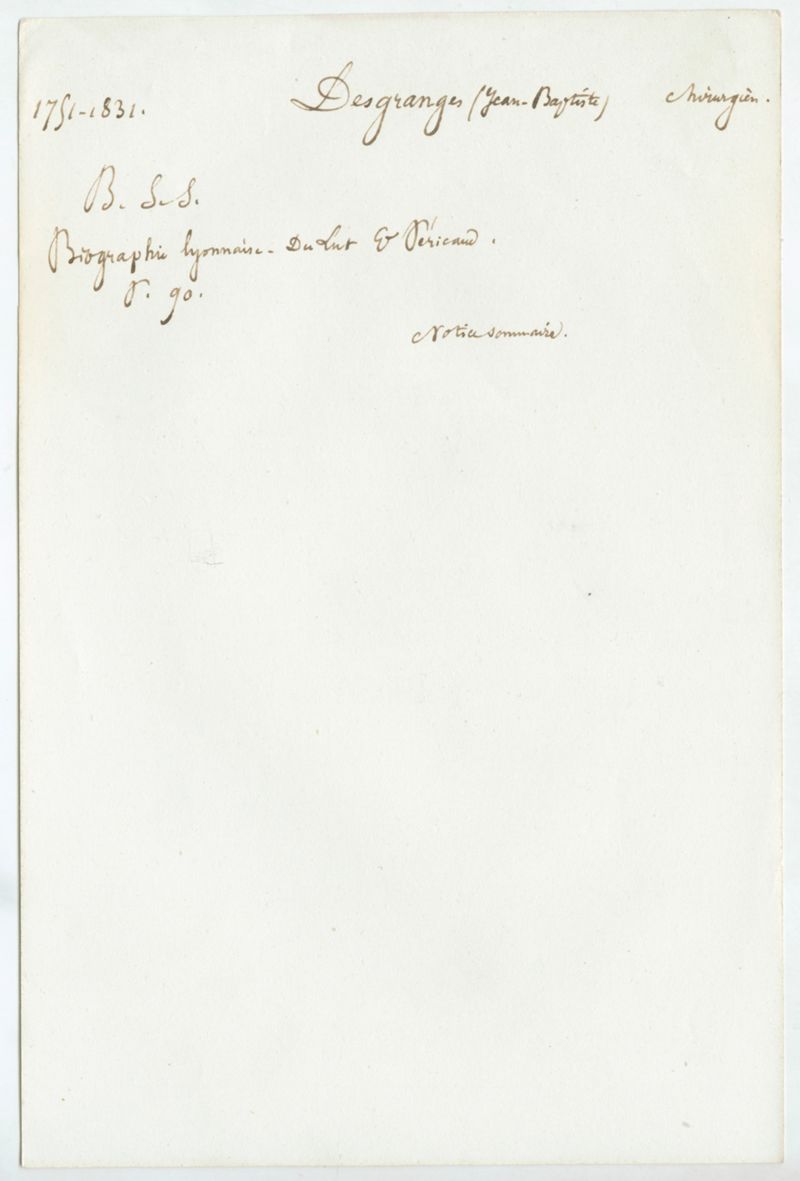 1751-1831. Desgranges (Jean-Baptiste) chirurgien.
B. S. S.
Biographie lyonnaise - Du Lut & Péricaud.
P. 90.
Notice sommaire.